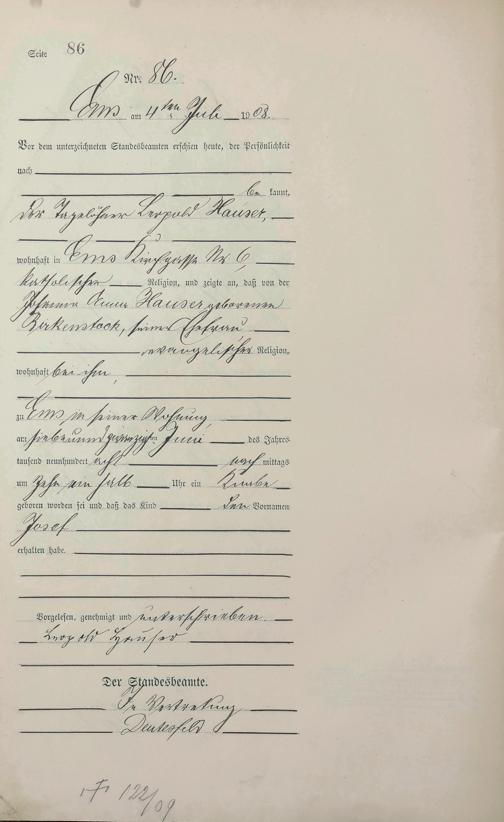 Seite 86
Nr. 86.
Ems am 4ten Juli 1908.
Vor dem unterzeichneten Standesbeamten erschien heute, der Persönlichkeit
nach
be kannt,
der Tagelöhner Leopold Hauser,
wohnhaft in Ems Kirchgasse Nr 6,
katholischer Religion, und zeigte an, daß von der
Johanna Anna Hauser geborenen
Birkenstock, seiner Ehefrau
evangelischer Religion,
wohnhaft bei ihm,
zu Ems in seiner Wohnung
am siebenundzwanzigten Juni des Jahres
tausend neunhundert acht nach mittags
um zehn ein halb Uhr ein Knabe
geboren worden sei und daß das Kind den Vornamen
Josef
erhalten habe.
Vorgelesen, genehmigt und unterschrieben
Leopold Hauser
Der Standesbeamte.
In Vertretung
122/09